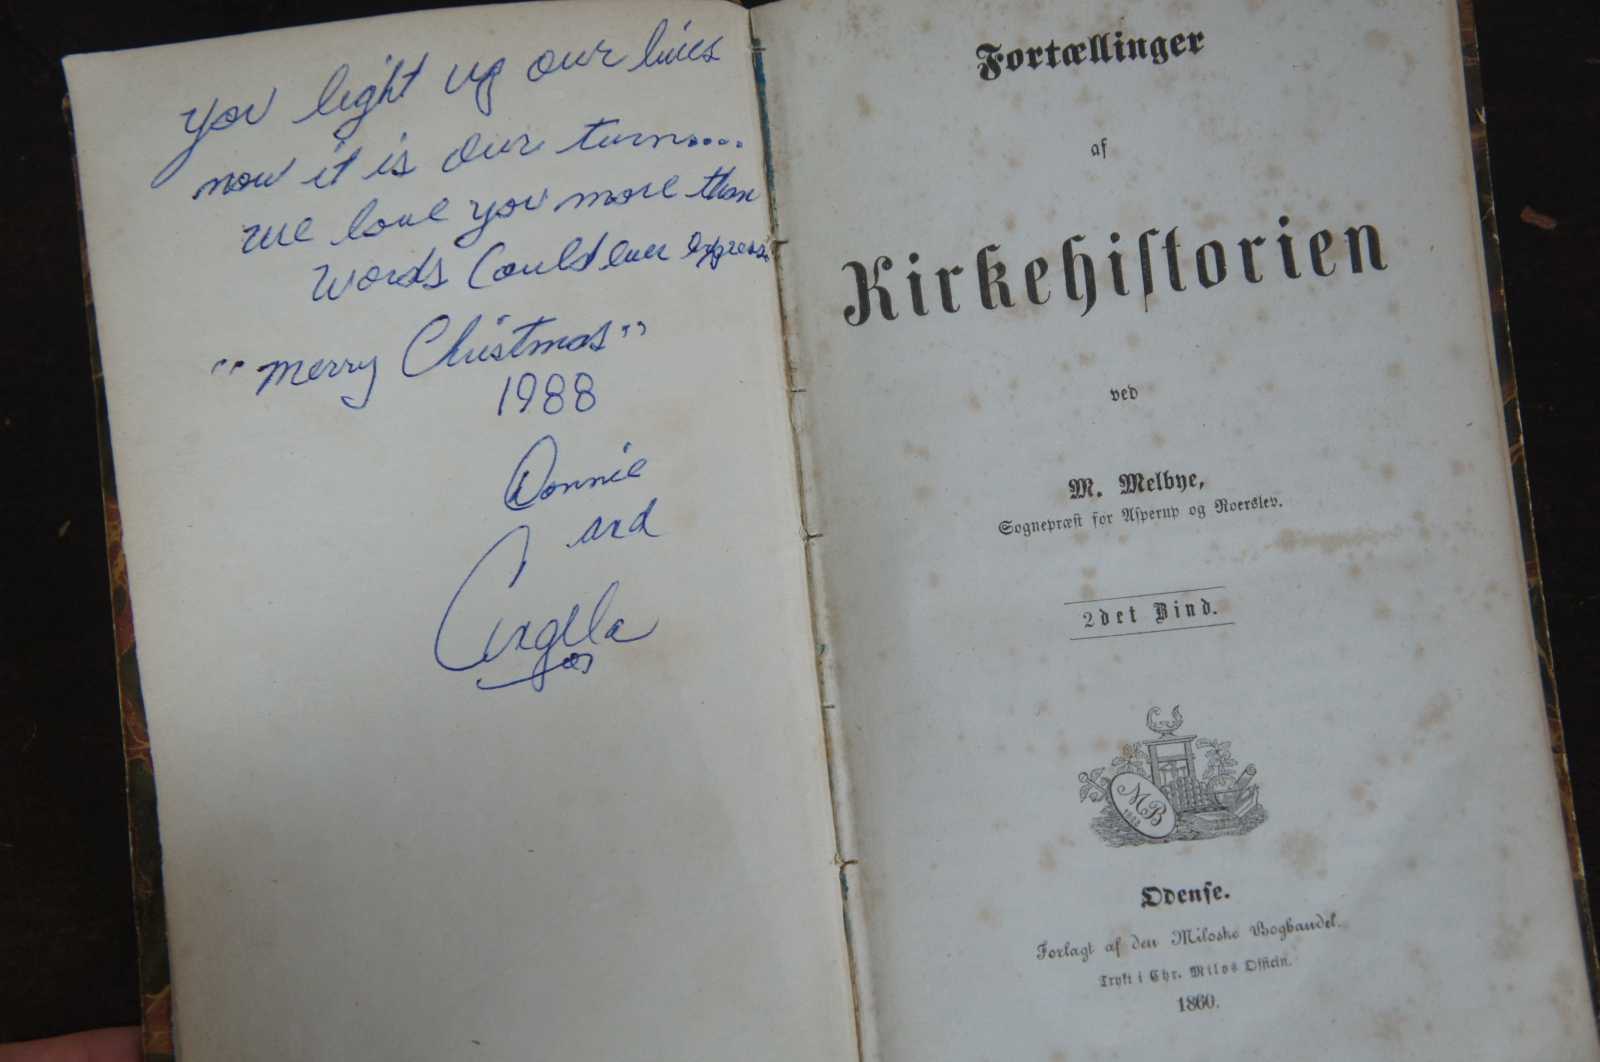 you light up our lives
now it is our turn....
we love you more than
words could ever express.
"merry Christmas"
1988
Donnie
and
Angela
Fortællinger
af
Kirkehiſtorien
ved
M. Melbye,
Sognepræſt for Aſperup og Roerslev.
2det Bind.
MB
Odenſe.
Forlagt af den Miloske Boghandel.
Trykt i Chr. Milos Officin.
1860.